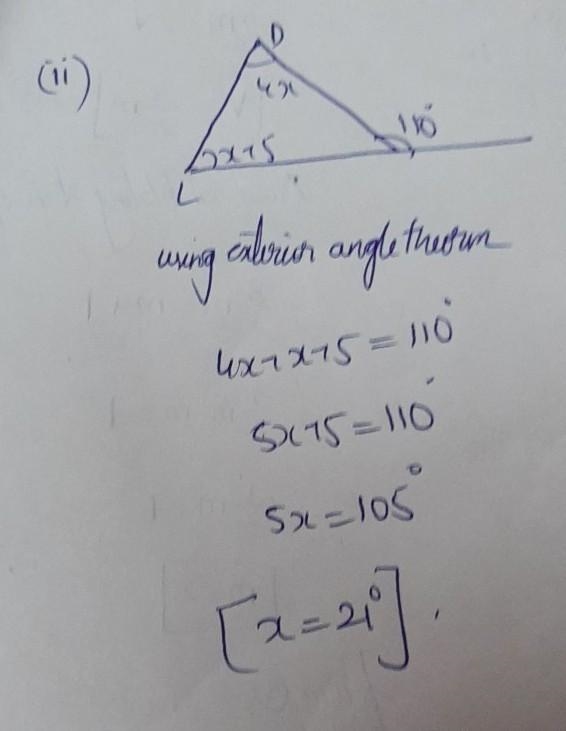 (ii)
D
4x
110°
x+5
L
using exterior angle theorem
4x+x+5=110°
5x+5=110°
5x=105°
[x=21°].